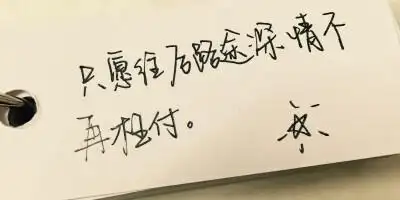 只愿往后路途深情不
再枉付。